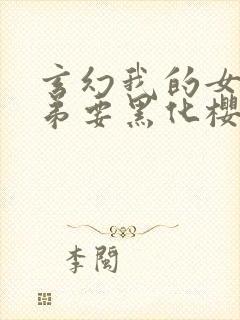 玄幻我的女
弟要黑化樱
李闽